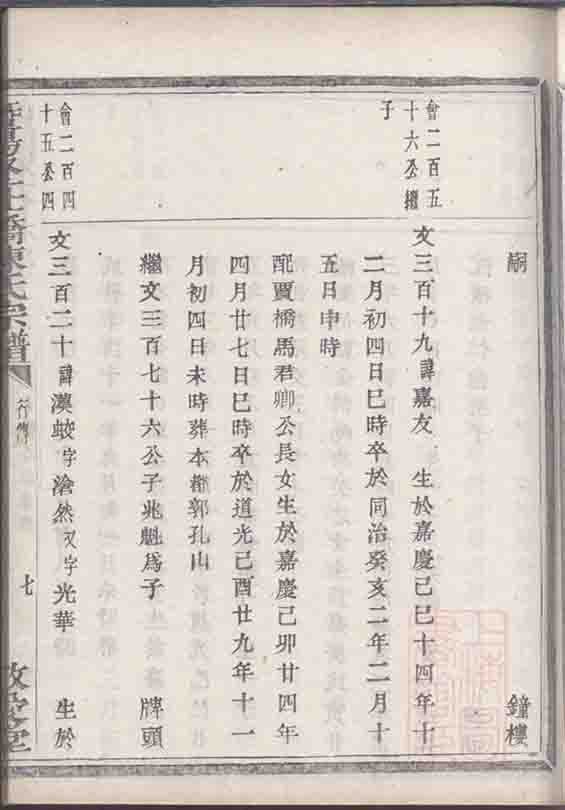 嗣 鐘樓
會二百五
十六公繼
子
文三百十九諱嘉友 生於嘉慶己巳十四年十
二月初四日巳時卒於同治癸亥二年二月十
五日申時
配賈橋馬君卿公長女生於嘉慶己卯廿四年
四月廿七日巳時卒於道光己酉廿九年十一
月初四日未時葬本都郭孔山
繼文三百七十六公子兆魁爲子 牌頭
會二百四
十五公四
文三百二十諱漢蛟字滄然又字光華 生於
橋陳氏宗譜
行傳
七
敦堂